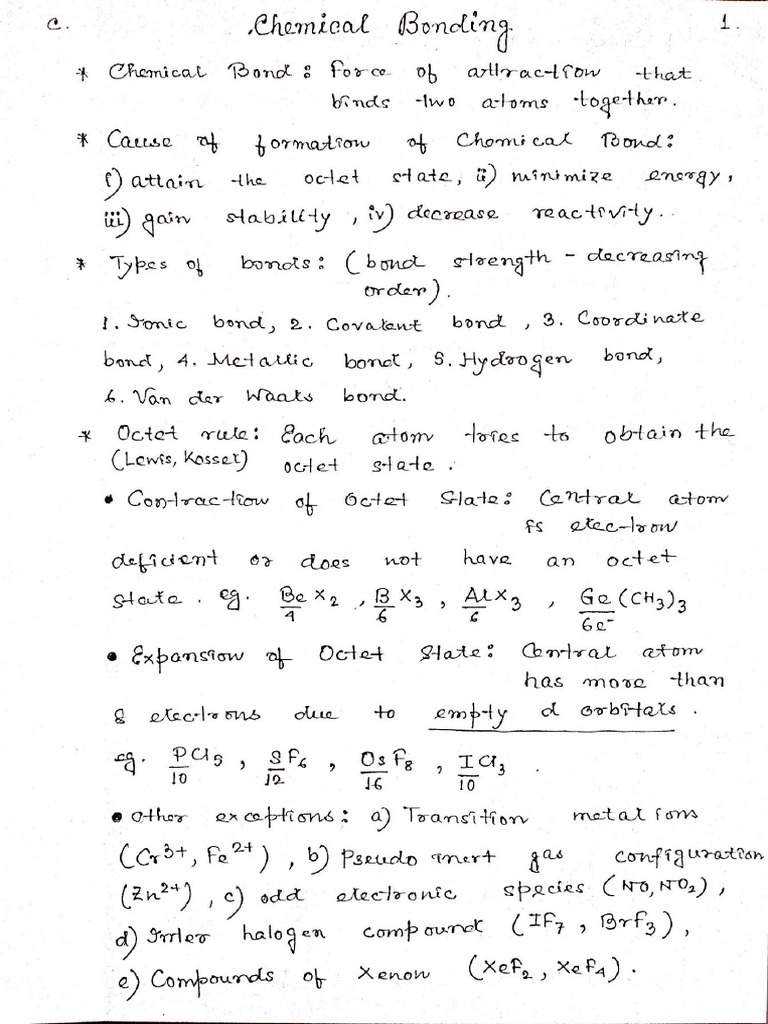 C. Chemical Bonding 1.
* Chemical Bond : force of attraction that
binds two atoms together.
* Cause of formation of Chemical Bond :
i) attain the octet state, ii) minimize energy,
iii) gain stability, iv) decrease reactivity..
* Types of bonds : (bond strength - decreasing
order).
1. Ionic bond, 2. Covalent bond, 3. Coordinate
bond, 4. Metallic bond, 5. Hydrogen bond,
6. Van der Waals bond.
* Octet rule : Each atom tries to obtain the
(Lewis, Kossel) octet state.
• Contraction of Octet State : Central atom
is electron
deficient or does not have an octet
state. eg. BeX₂, BX₃, AlX₃, Ge(CH₃)₃
4 6 6 6e⁻
• Expansion of Octet State : Central atom
has more than
8 electrons due to empty d orbitals.
eg. PCl₅, SF₆, OsF₈, ICl₃.
10 12 16 10
• Other exceptions : a) Transition metal ions
(Cr³⁺, Fe²⁺), b) Pseudo inert gas configuration
(Zn²⁺), c) odd electronic species (NO, NO₂),
d) Inter halogen compound (IF₇, BrF₃),
e) Compounds of Xenon (XeF₂, XeF₄).